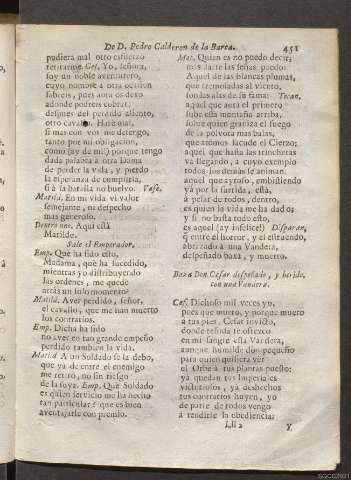 De D. Pedro Calderon de la Barca. 451
pudiera mal otro esfuerzo
retirarme. Ces. Yo, señora,
soy un noble aventurero,
cuyo nombre à otra ocasion
sabreis, pues aora es dexo
adonde podreis cobrar,
despues del perdido aliento,
otro cavallo. Harè mal,
si mas con vos me detengo,
tanto por mi obligacion,
como (ay de mi!) porque tengo
dada palabra à otra Dama
de perder la vida, y pierdo
la esperanza de cumplirla,
si à la batalla no buelvo. Vase.
Matild. En mi vida vì valor
semejante, ni despecho
mas generoso.
Dentro unos. Aqui està
Matilde.
Sale el Emperador.
Emp. Què ha sido esto,
Madama, què ha sucedido,
mientras yo distribuyendo
las ordenes, me quedè
atràs un solo momento?
Matild. Aver perdido, señor,
el cavallo, que me han muerto
los contrarios.
Emp. Dicha ha sido
no aver en tan grande empeño
perdido tambien la vida.
Matild. A un Soldado se la debo,
que yà de entre el enemigo
me retirò, no sin riesgo
de la suya. Emp. Què Soldado
es quien servicio me ha hecho
tan particular? que es bien
aventajarle con premio.
Mat. Quien es no puedo decir;
mas darte las señas puedo:
Aquel de las blancas plumas,
que tremoladas al viento,
son las alas de su fama: Tocan.
aquel que aora el primero
sube essa montaña arriba,
sobre quien graniza el fuego
de la polvora mas balas,
que atomos sacude el Cierzo;
aquel, que hasta las trincheras
và llegando, à cuyo exemplo
todos los demàs se animan:
aquel que ayroso, embistiendo
yà por la surtida, està,
à pesar de todos, dentro,
es quien la vida me ha dado;
y si no basta todo esto,
es aquel (ay infelice!) Disparan,
que entre el horror, y el estruendo,
abrazado à una Vandera,
despeñado baxa, y muerto.
Baxa Don Cesar despeñado, y herido,
con una Vandera.
Ces. Dichoso mil veces yo,
pues que muero, y porque muero
à tus pies, Cesar invicto,
donde teñida te ofrezco
en mi sangre esta Vandera,
aunque humilde don pequeño
para quien quisiera vèr
el Orbe à tus plantas puesto:
yà quedan tus Imperiales
victoriosos, yà deshechos
tus contrarios huyen, yo
de parte de todos vengo
à rendirte la obediencia:
Lll 2 Y